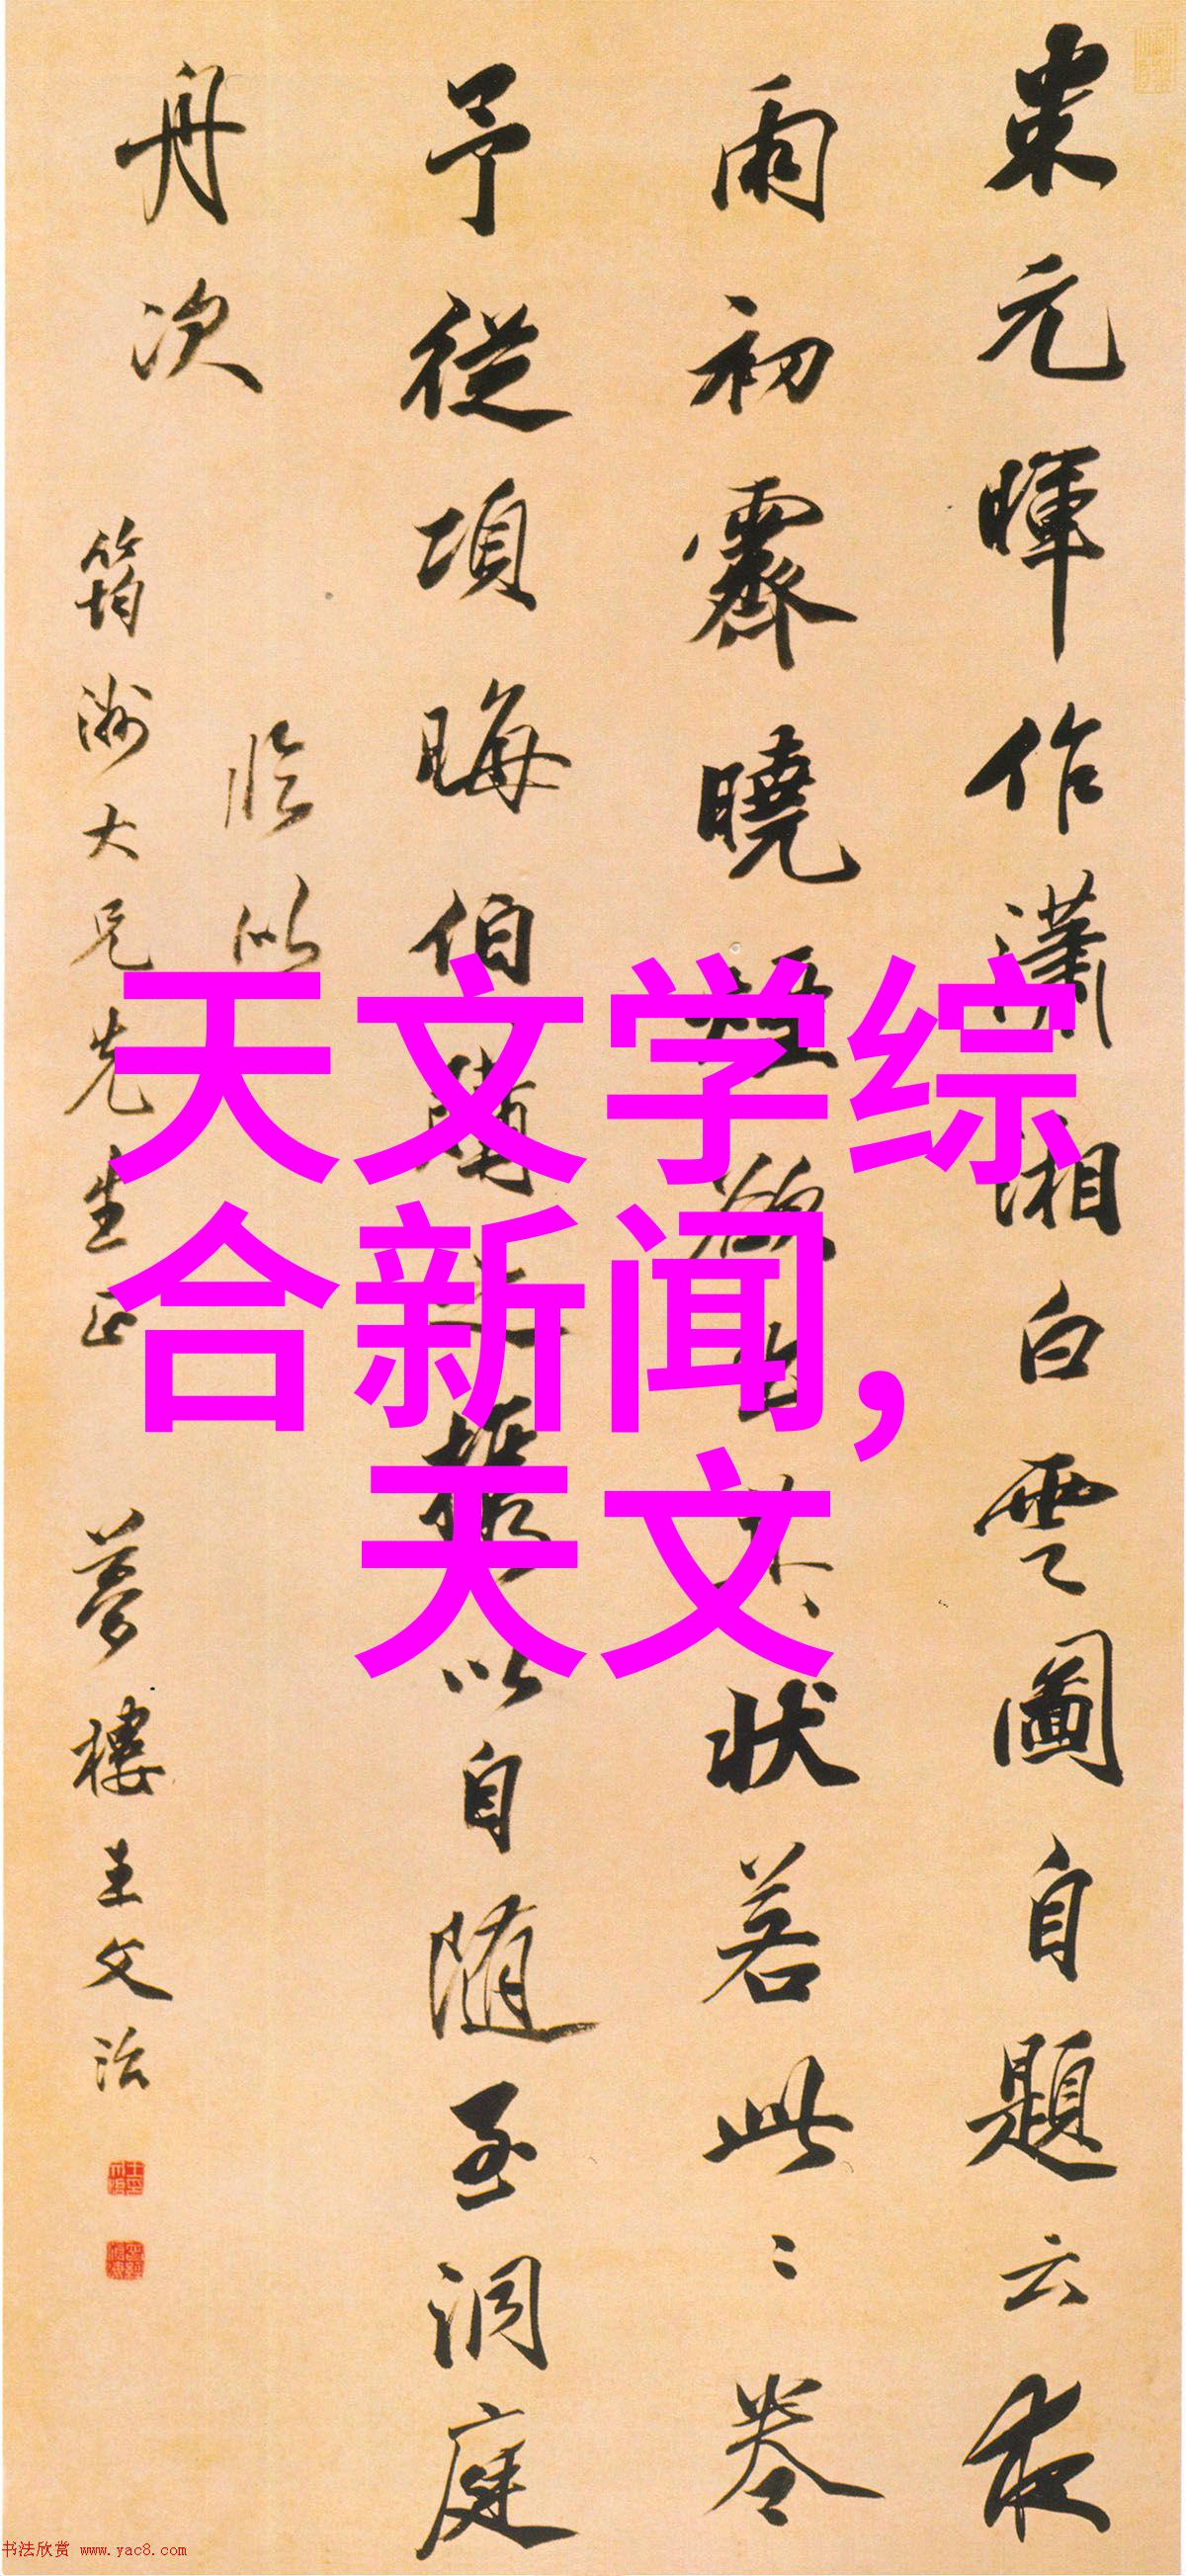 米元暉作瀟湘白雲圖自題云夜
雨初霽曉煙欲出其狀若此此卷
予從項晦伯購之攜以自隨至洞庭
舟次
臨似
筠洲大兄先生正
夢樓王文治
天文学综
合新闻,
天文
书法欣赏 www.yac8.com